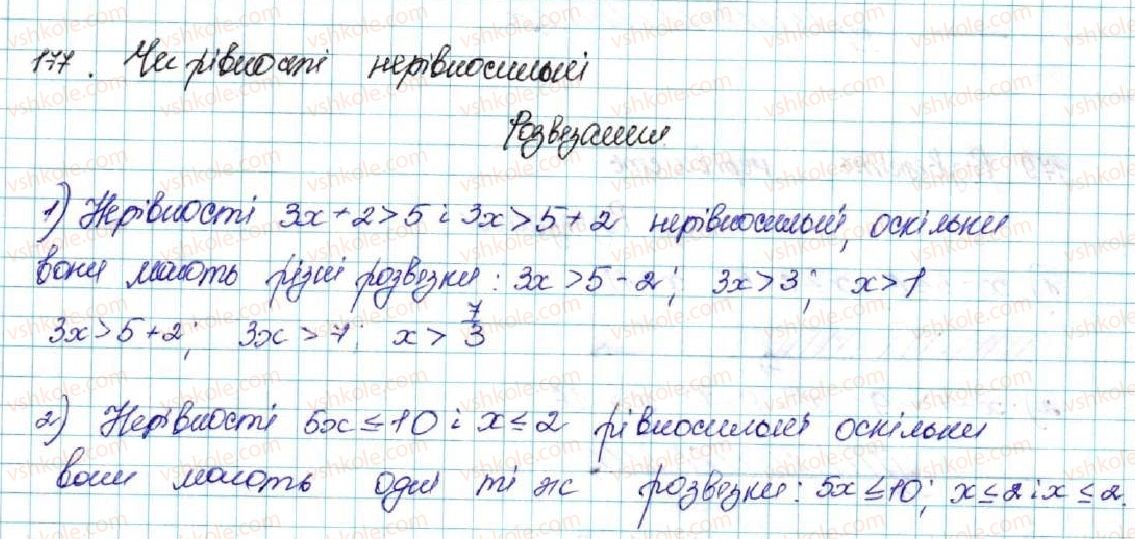 177. Чи рівності нерівносильні
Розвезання
1) Нерівності 3x + 2 > 5 і 3x > 5 + 2 нерівносильні, оскільки
вони мають різні розвезки: 3x > 5 - 2; 3x > 3; x > 1
3x > 5 + 2; 3x > 7; x > 7/3
2) Нерівності 5x ≤ 10 і x ≤ 2 рівносильні оскільки
вони мають одні ті ж розвезки: 5x ≤ 10; x ≤ 2 і x ≤ 2.
vshkole.com